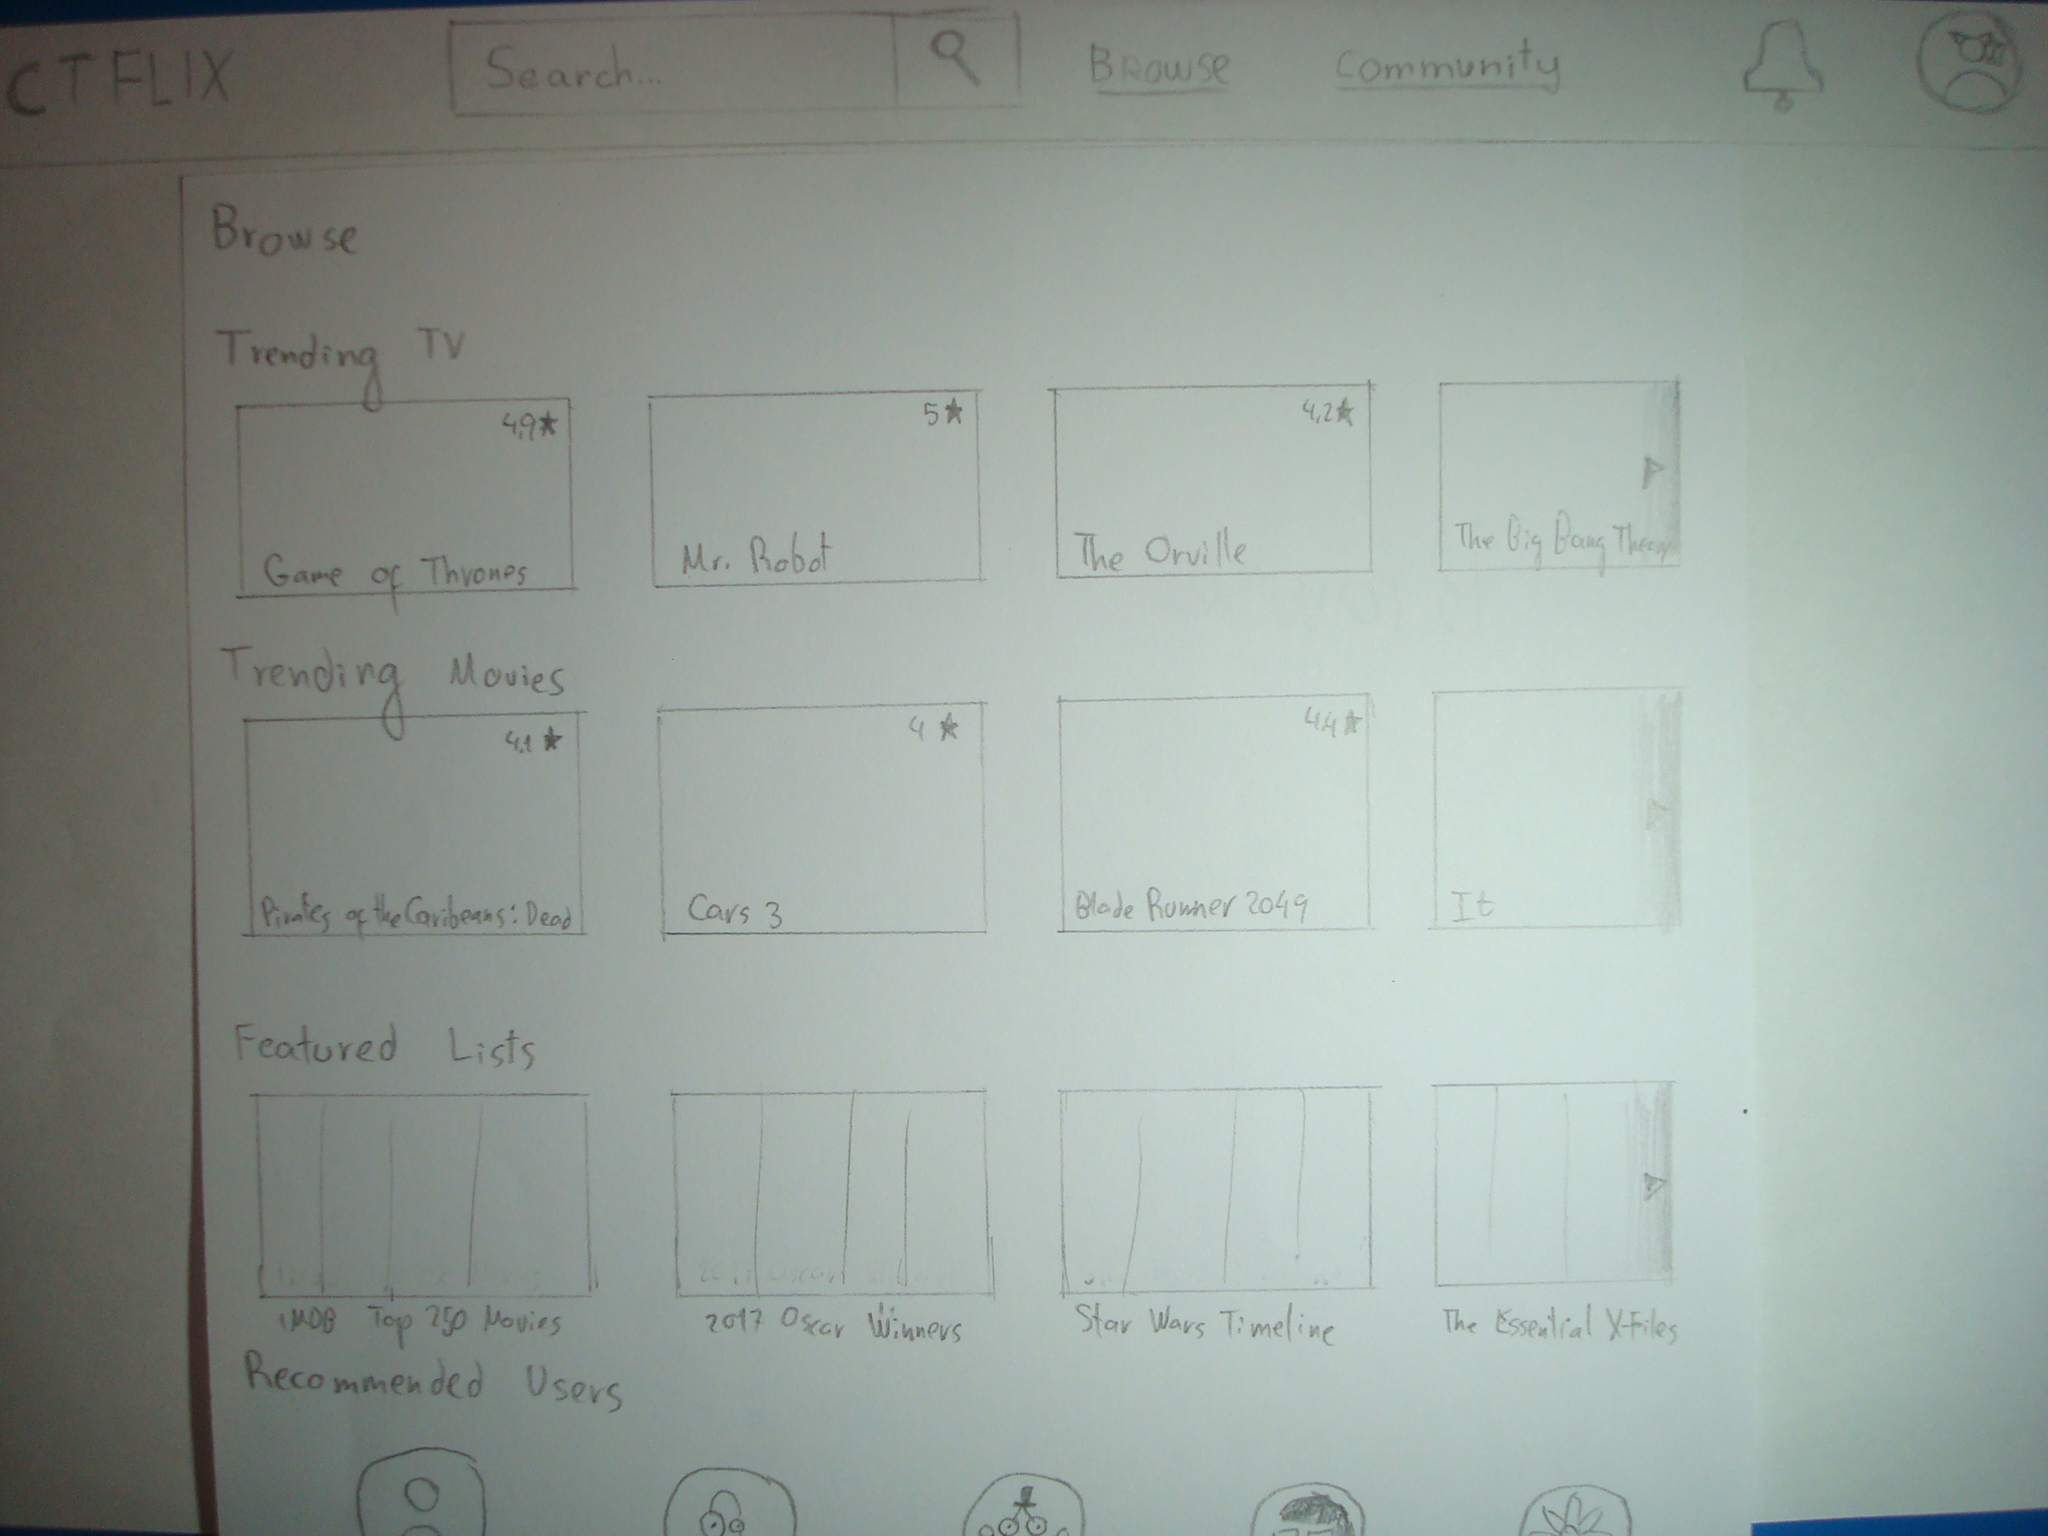 CTFLIX Search... Browse Community
Browse
Trending TV
4,9★ 5★ 4,2★
Game of Thrones Mr. Robot The Orville The Big Bang Theory
Trending Movies
4,1★ 4★ 4,4★
Pirates of the Caribeans: Dead Cars 3 Blade Runner 2049 It
Featured Lists
IMDB Top 250 Movies 2017 Oscar Winners Star Wars Timeline The Essential X-Files
Recommended Users